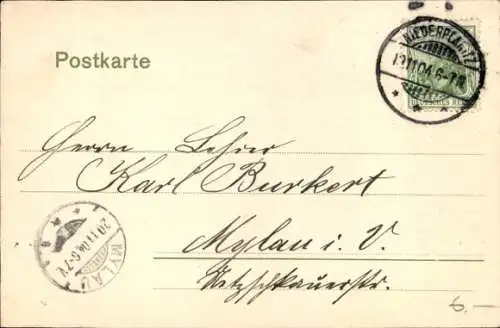 NIEDERPLANITZ
19.11.04. 6-7N
DEUTSCHES REICH
Postkarte
Herrn Lehrer
Karl Burkert
Mylau i. V.
Netzschkauerstr.
MYLAU
20.11.04. 6-7V
6.—